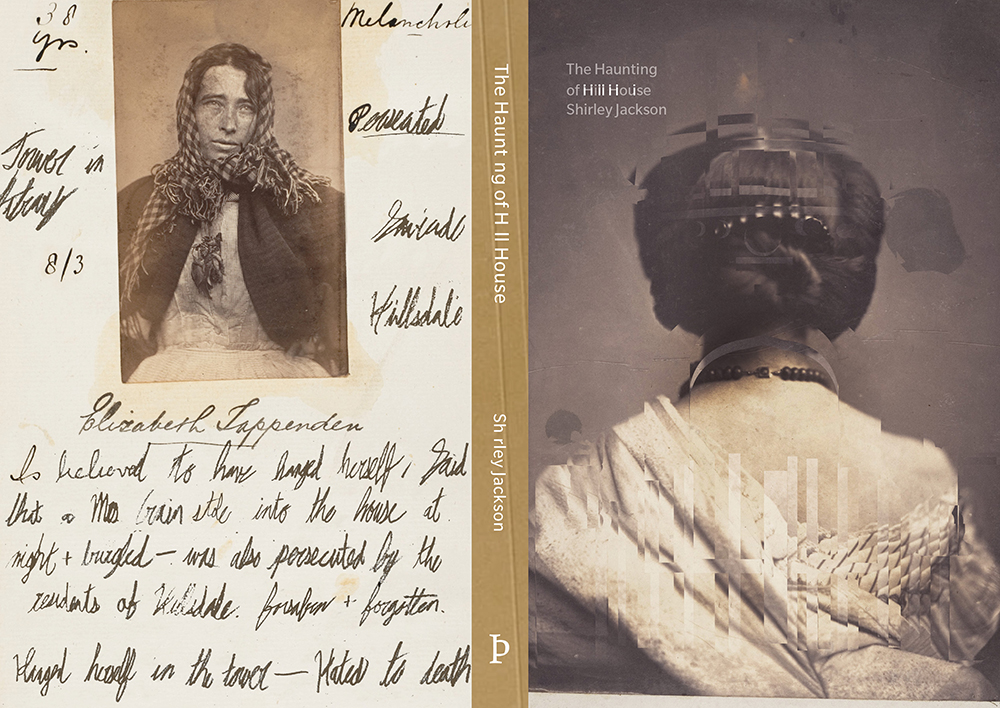 38
yrs.
Melancholi
Tower in
8/3
Suicide
Hillsdale
Elizabeth Tappenden
Is believed to have hanged herself, Said
that a Mos brain stole into the house at
night + burgled — was also persecuted by the
residents of Hillsdale. forsaken + forgotten.
Hanged herself in the tower — Hated to death
The Haunt ng of H ll House
Sh rley Jackson
The Haunting
of Hill House
Shirley Jackson